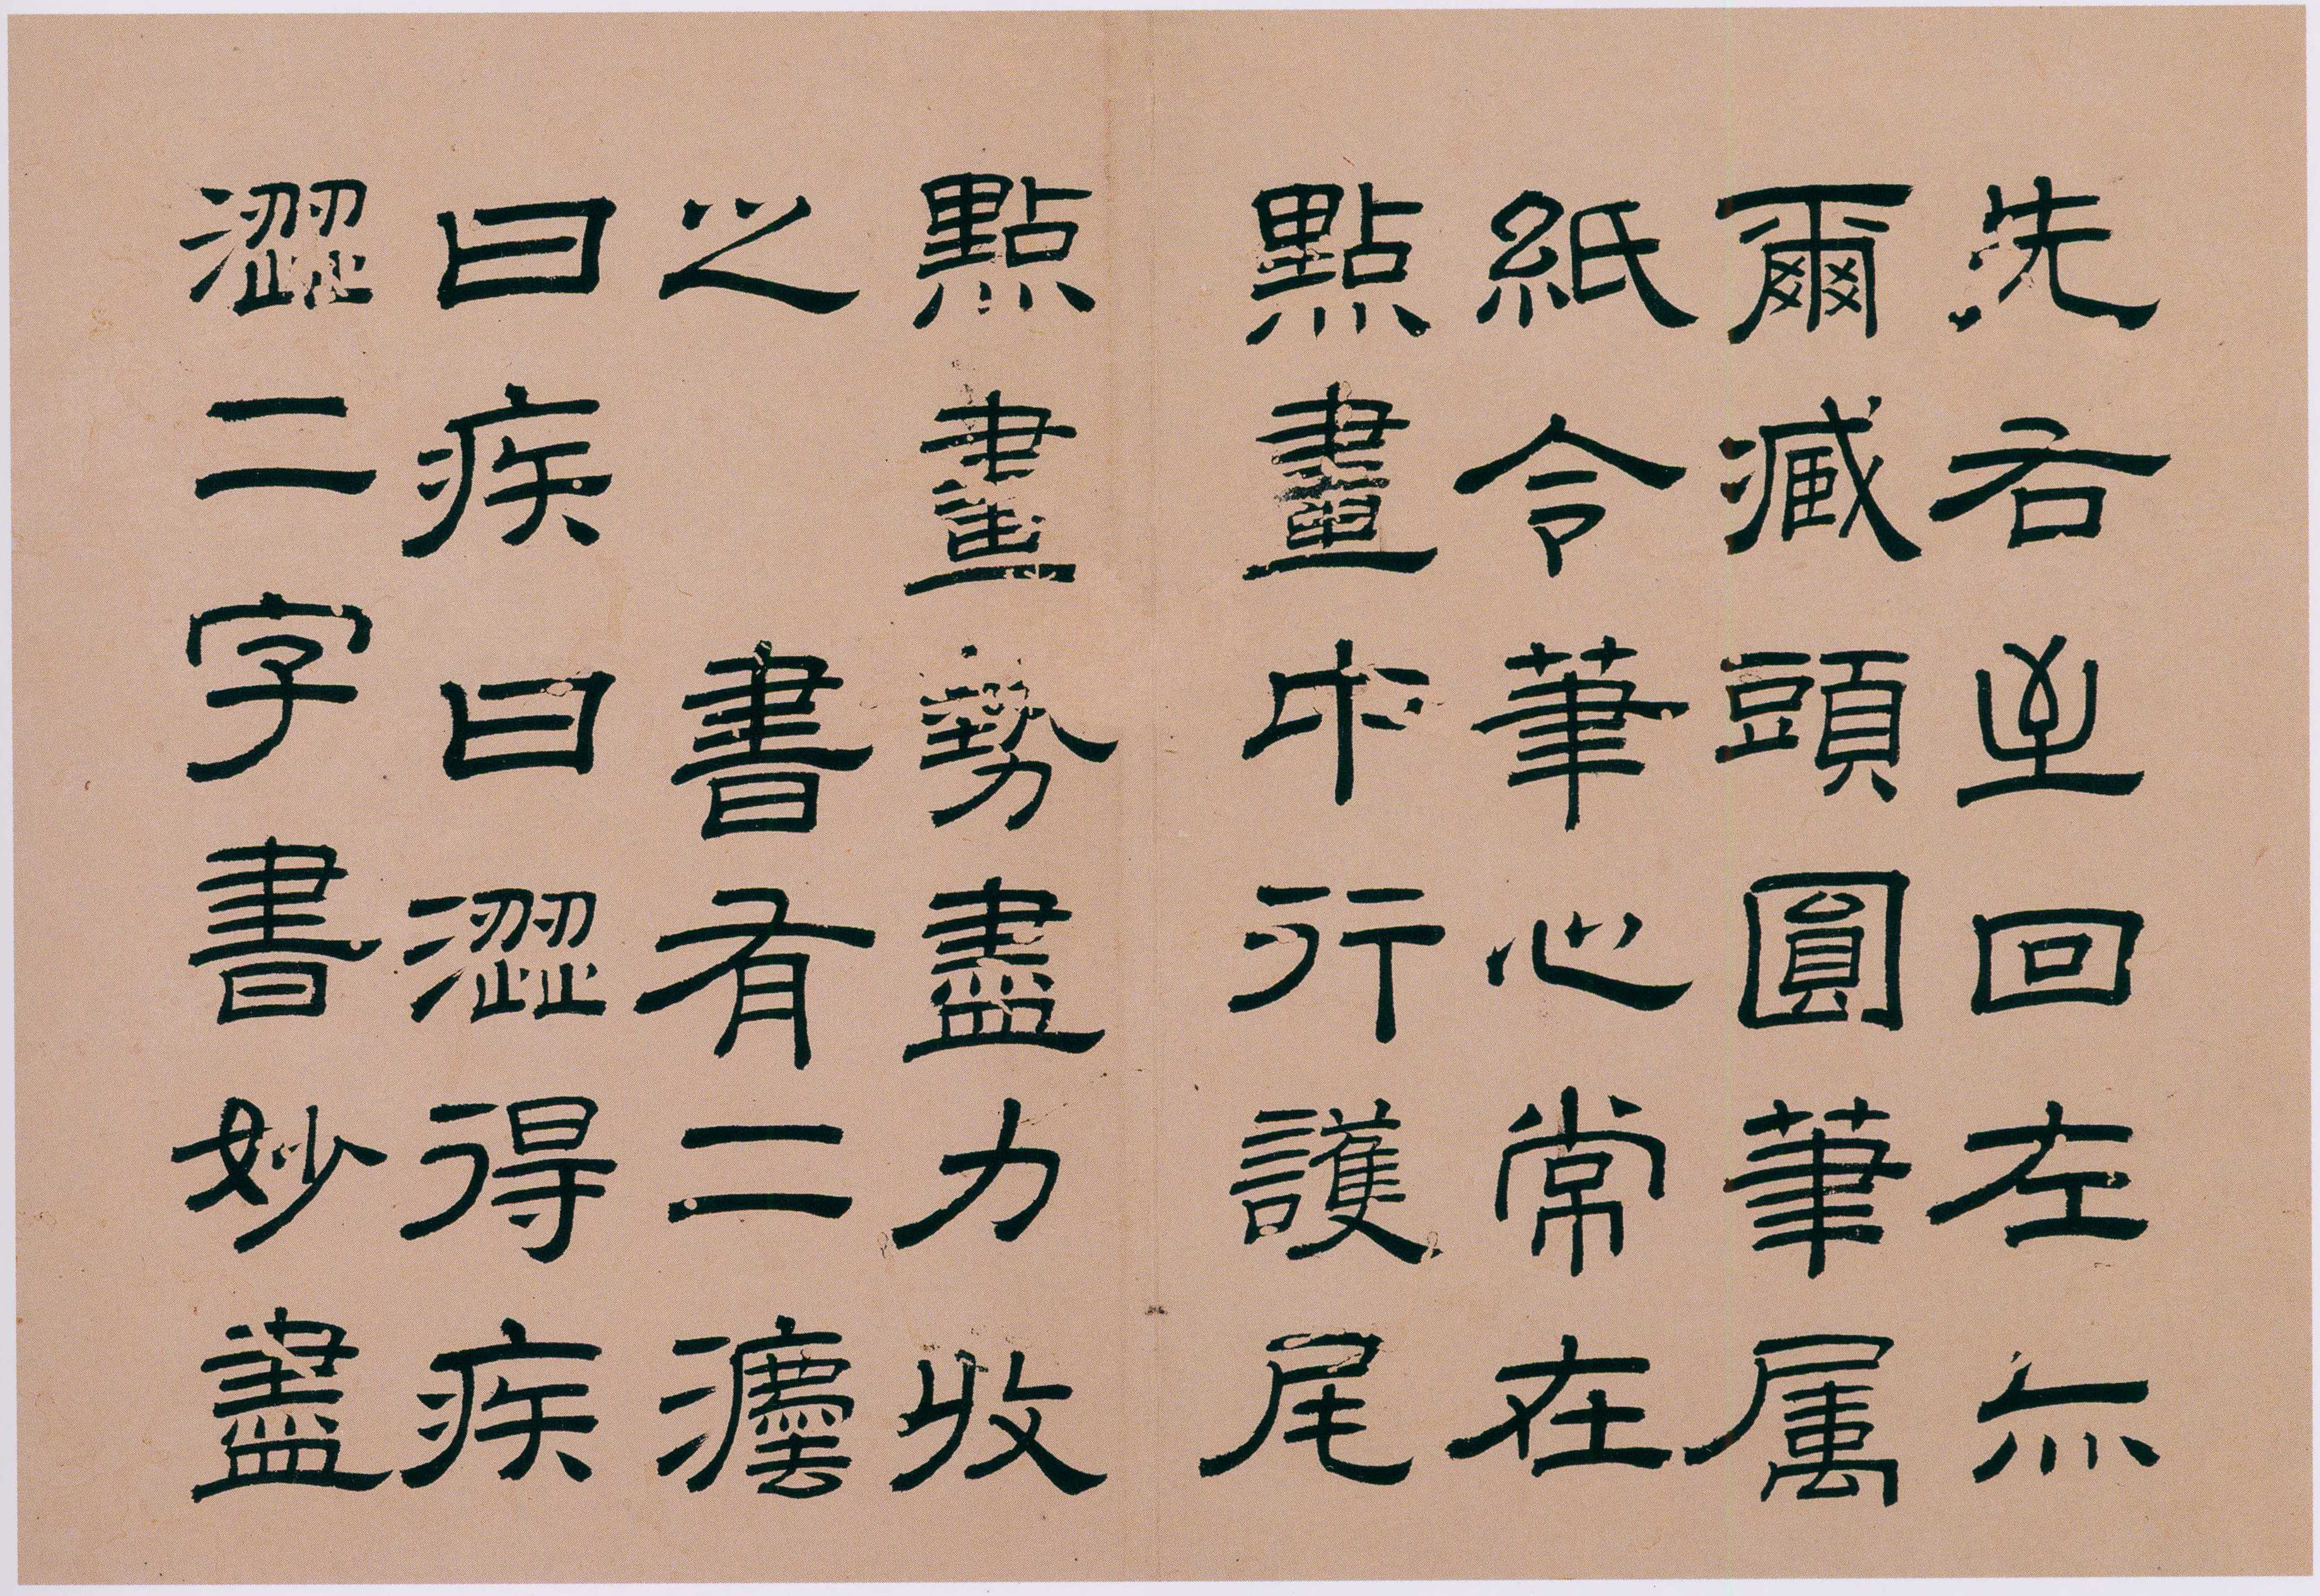 先右至回左亦
爾藏頭圓筆属
紙令筆心常在
點畫中行護尾
點畫勢盡力收
之　書有二灋
曰疾曰澀得疾
澀二字書妙盡